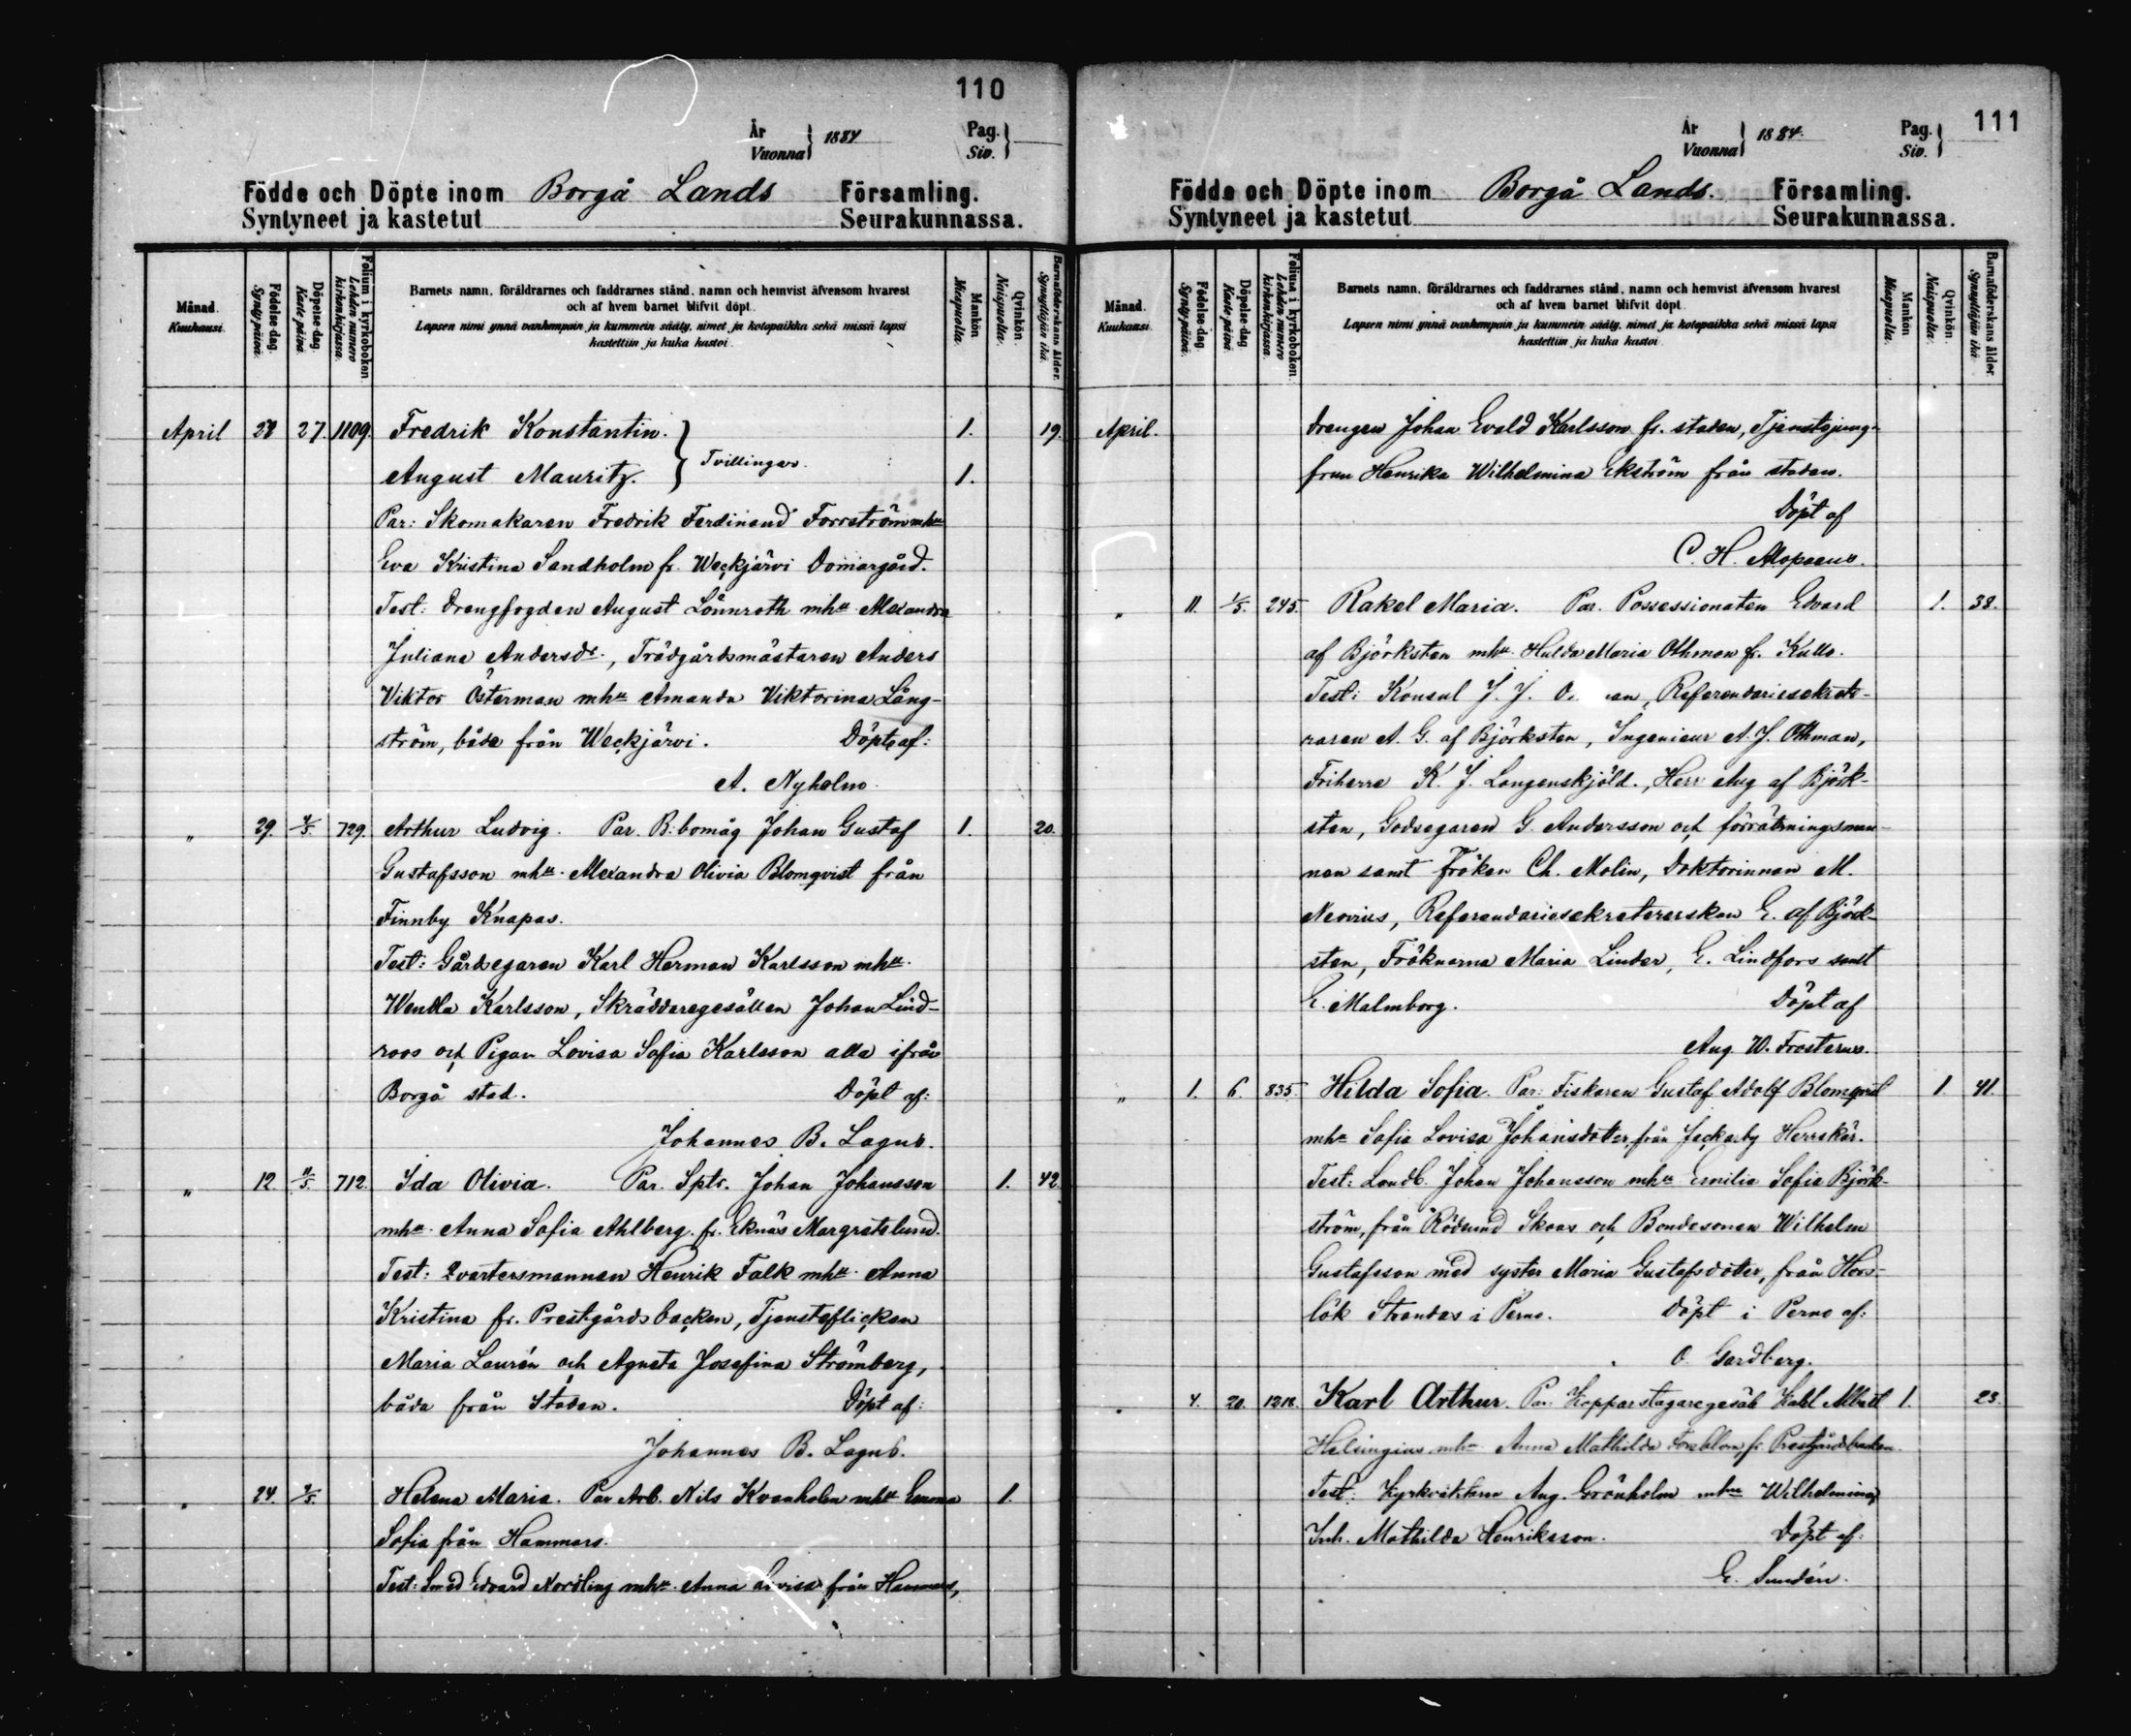 110
År
Vuonna } 1884
Pag.
Siv. }
Födde och Döpte inom Borgå Lands Församling.
Syntyneet ja kastetut Seurakunnassa.
Månad.
Kuukausi.
Födelse-dag.
Synty päivä.
Döpelse-dag.
Kaste päivä.
Folium i kyrkoboken
Lehden numero
kirkonkirjassa.
Barnets namn, föräldrarnes och faddrarnes stånd, namn och hemvist äfvensom hvarest
och af hvem barnet blifvit döpt.
Lapsen nimi ynnä vanhempain ja kummein sääty, nimet ja kotopaikka sekä missä lapsi
kastettiin ja kuka kastoi.
Mankön
Miespuolta.
Qvinkön.
Naispuolta.
Barnaföderskans ålder.
Synnyttäjän ikä.
April 27. 1109. Fredrik Konstantin. 1. 19.
August Mauritz. } Tvillingar. 1.
Par: Skomakaren Fredrik Ferdinand Forrström mhu
Eva Kristina Sandholm fr. Weckjärvi Domargård.
Test: Drengfogden August Lönnroth mhu Alexandra
Juliana Andersdr., Trädgårdsmästaren Anders
Viktor Österman mhu Amanda Viktorina Lång-
ström, båda från Weckjärvi. Döpte af:
A. Nyholm.
" 29. 4/5. 729. Arthur Ludvig. Par. B:bomåg Johan Gustaf 1. 20.
Gustafsson mhu. Alexandra Olivia Blomqvist från
Finnby Knapas.
Test: Gårdsegaren Karl Herman Karlsson mhu.
Wendla Karlsson, Skräddaregesällen Johan Lind-
roos och Pigan Lovisa Sofia Karlsson alla ifrån
Borgå stad. Döpt af:
Johannes B. Lagus.
" 12. 11/5. 712. Ida Olivia. Par. Sptr. Johan Johansson 1. 42
mhu. Anna Sofia Ahlberg. fr. Eknäs Margretelund.
Test: Qvartersmannen Henrik Falk mhu. Anna
Kristina fr. Prestgårdsbacken, Tjensteflickan
Maria Laurén och Agneta Josefina Strömberg,
båda från Staden. Döpt af:
Johannes B. Lagus.
" 24. Helena Maria. Par Arb. Nils Kvanholm mhu Emma 1.
Sofia från Hammars.
Test: Smed Edvard Nordling mhu. Anna Lovisa från Hammars,
111
År
Vuonna } 1884.
Pag.
Siv. }
Födde och Döpte inom Borgå Lands. Församling.
Syntyneet ja kastetut Seurakunnassa.
Månad.
Kuukausi.
Födelse-dag.
Synty päivä.
Döpelse-dag
Kaste päivä.
Folium i kyrkoboken
Lehden numero
kirkonkirjassa.
Barnets namn, föräldrarnes och faddrarnes stånd, namn och hemvist äfvensom hvarest
och af hvem barnet blifvit döpt.
Lapsen nimi ynnä vanhempain ja kummein sääty, nimet ja kotopaikka sekä missä lapsi
kastettiin ja kuka kastoi.
Mankön
Miespuolta.
Qvinkön.
Naispuolta.
Barnaföderskans ålder
Synnyttäjän ikä.
April. Drengen Johan Evald Karlsson fr. staden, Tjenstejung-
frun Henrika Wilhelmina Ekström från staden.
Döpt af
C. H. Alopaeus.
" 11. 1/5. 245. Rakel Maria. Par. Possessionaten Edvard 1. 38.
af Björksten mhu. Hulda Maria Othman fr. Kullo.
Test: Konsul J. J. Referendariesekrete-
raren A. G. af Björksten, Ingenieur A. J. Othman,
Friherre K. J. Langenskjöld., Herr Aug af Björk-
sten, Godsegaren G. Andersson och förrättningsman-
nen samt Fröken Ch. Molin, Doktorinnan M.
Neovius, Referendariesekreterarskan E. af Björk-
sten, Fröknarna Maria Linder, E. Lindfors samt
E. Malmborg. Döpt af
Aug. W. Frosterus.
" 1. 6. 835. Hilda Sofia. Par: Fiskaren Gustaf Adolf Blomqvist 1. 41.
mhu Sofia Lovisa Johansdotter, från Jackarby Herrskär.
Test: Landb. Johan Johansson mhu Emilia Sofia Björk-
ström, från Rödsund Skoas och Bondesonen Wilhelm
Gustafsson med syster Maria Gustafsdotter, från Hors-
lök Strandas i Perno. Döpt i Perno af:
O. Gardberg.
" 4. 20. Karl Arthur. Par: Kopparslagaregesäll Karl Albert 1. 23.
Helsingius mhu Anna Mathilda fr. Prestgårdsbacken.
Test: Kyrkväktaren Aug. Grönholm mhu Wilhelmina,
Inh. Mathilda Henriksson. Döpt af:
E. Sundén.